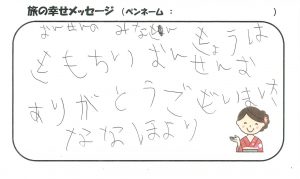 旅の幸せメッセージ (ペンネーム： )
おんせんの みなさん きょうは
きもちい おんせんむ
ありがとうございました
ななほより